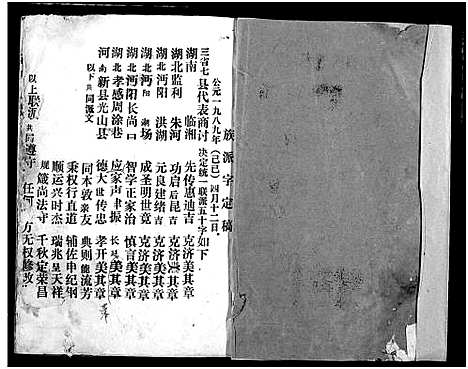 族派字定稿
公元一九八九年(己巳)四月十二日。
三省七县代表商讨决定统一联派五十字如下
湖南 临湘 先传惠迪吉 克济美其章
湖北监利 朱河 功启后昆吉 克济美其章
湖北沔阳 洪湖 元良建绪吉 克济美其章
湖北沔阳 场 成圣明世竟 克济美其章
湖北沔阳长尚口 智学正家治 慎言美其章
湖北孝感周涂巷 应家声丰振 长 美其章
河南新县光山县 德大世传忠 孝开美其章
以下共同派文
同本敦亲友 典则能流芳
秉权行直道 辅佐申纪纲
顺运兴时杰 瑞兆呈天祥
规箴尚法守 千秋定荣昌
以上联派 共同遵守 任何 方无权修改